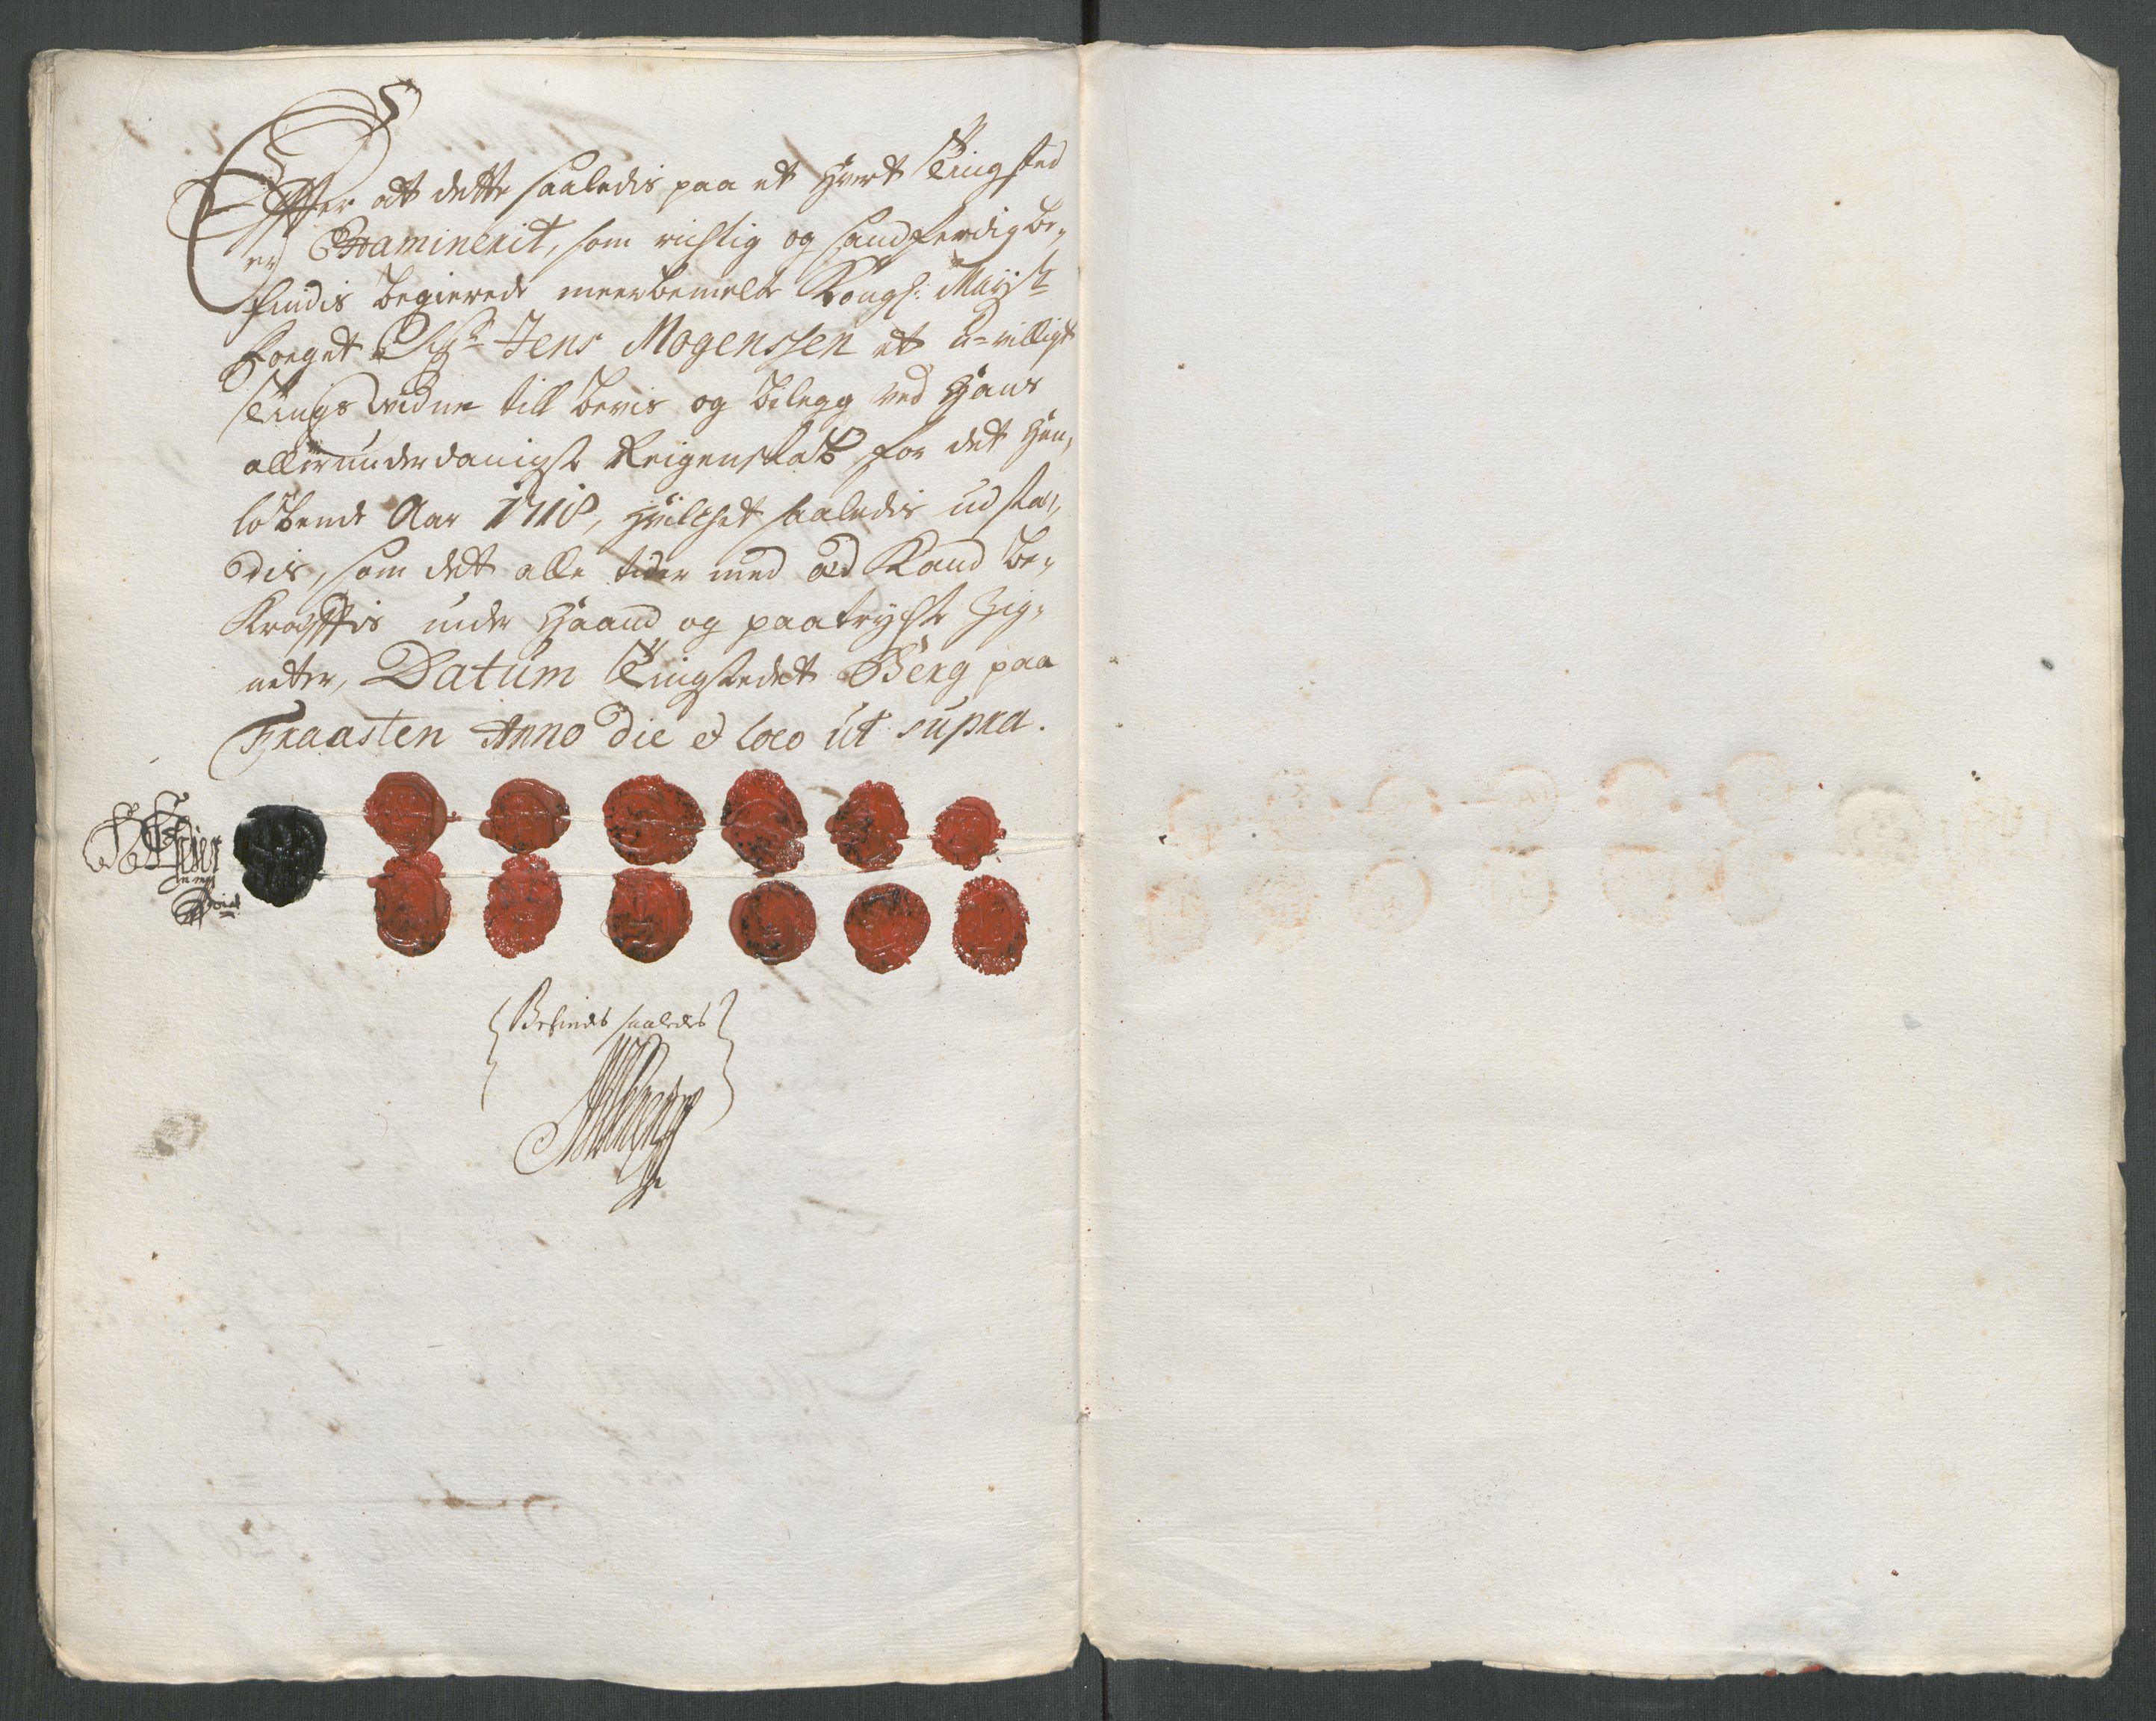 Efter at dette saaledis paa et hvert Tingsted
er Examinerit, som richtig og sandferdig be,
findis begierede meerbemelte Kongl: Mayts
Foeget Sigr Jens Mogenssen et u=villigt
Tings vidne till bevis og bilegg ved hans
allerunderdanigste Reigenskab for det hen,
løbende Aar 1718, hvilchet saaledis udstæ,
dis, som det alle tider med æd Kand be,
Kræfftis under haand og paatrychte Zig,
netter, Datum Tingstedet Berg paa
Fraasten Anno die et loco ut supra.
Befindes saaledes